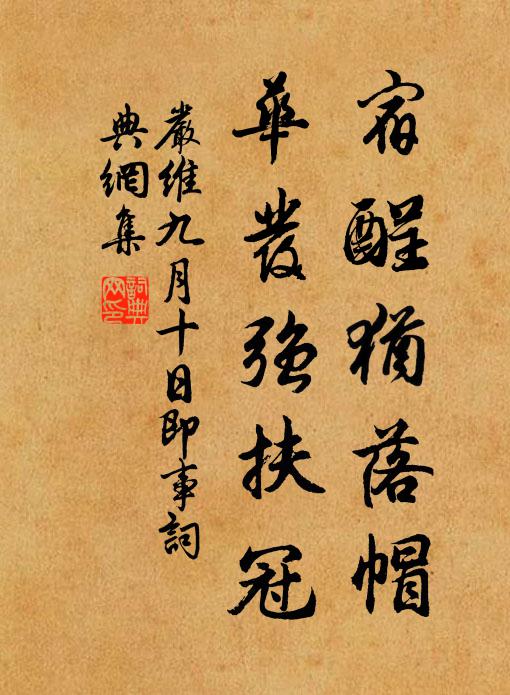 宿醒猶落帽
華發強扶冠
嚴維九月十日即事詞
典網集
詞典
网印